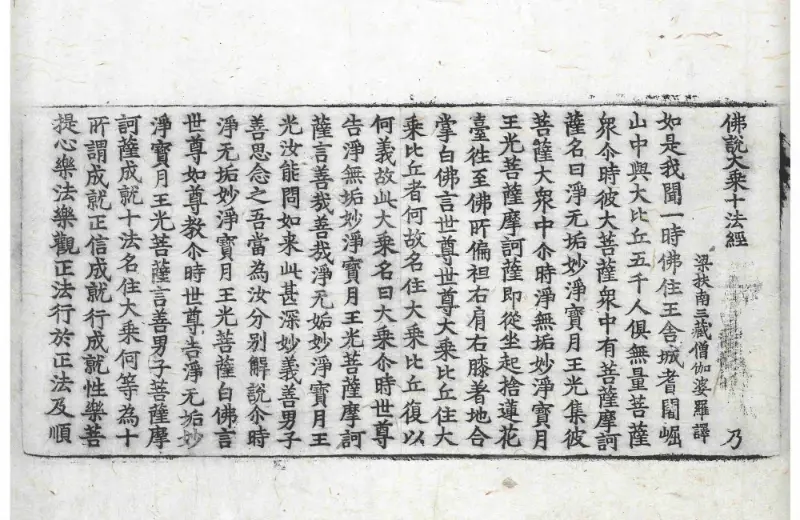 佛說大乘十法經 乃
梁扶南三藏僧伽婆羅譯
如是我聞一時佛住王舍城耆闍崛
山中與大比丘五千人俱無量菩薩
衆尒時彼大菩薩衆中有菩薩摩訶
薩名曰淨无垢妙淨寶月王光集彼
菩薩大衆中尒時淨無垢妙淨寶月
王光菩薩摩訶薩即從坐起捨蓮花
臺徃至佛所偏袒右肩右膝著地合
掌白佛言世尊世尊大乘比丘住大
乘比丘者何故名住大乘比丘復以
何義故此大乘名曰大乘尒時世尊
告淨無垢妙淨寶月王光菩薩摩訶
薩言善哉善哉淨无垢妙淨寶月王
光汝能問如来此甚深妙義善男子
善思念之吾當為汝分别解說尒時
淨无垢妙淨寶月王光菩薩白佛言
世尊如尊教尒時世尊告淨无垢妙
淨寶月王光菩薩言善男子菩薩摩
訶薩成就十法名住大乘何等為十
所謂成就正信成就行成就性樂菩
提心樂法樂觀正法行於正法及順